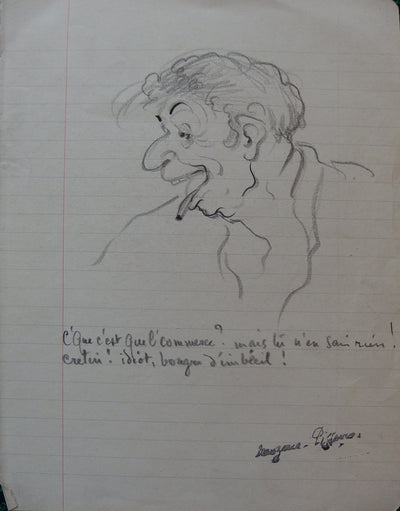 C'Que c'est que l'commerce? mais tu n'en sais rien!
cretin! idiot, bougre d'imbécil!